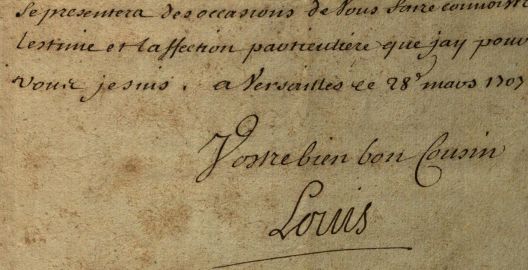 se presentera des occasions de vous faire connoistre
lestime et laffection particuliere que jay pour
vous je suis. a Versailles le 28e mars 1707
Vostre bien bon Cousin
Louis